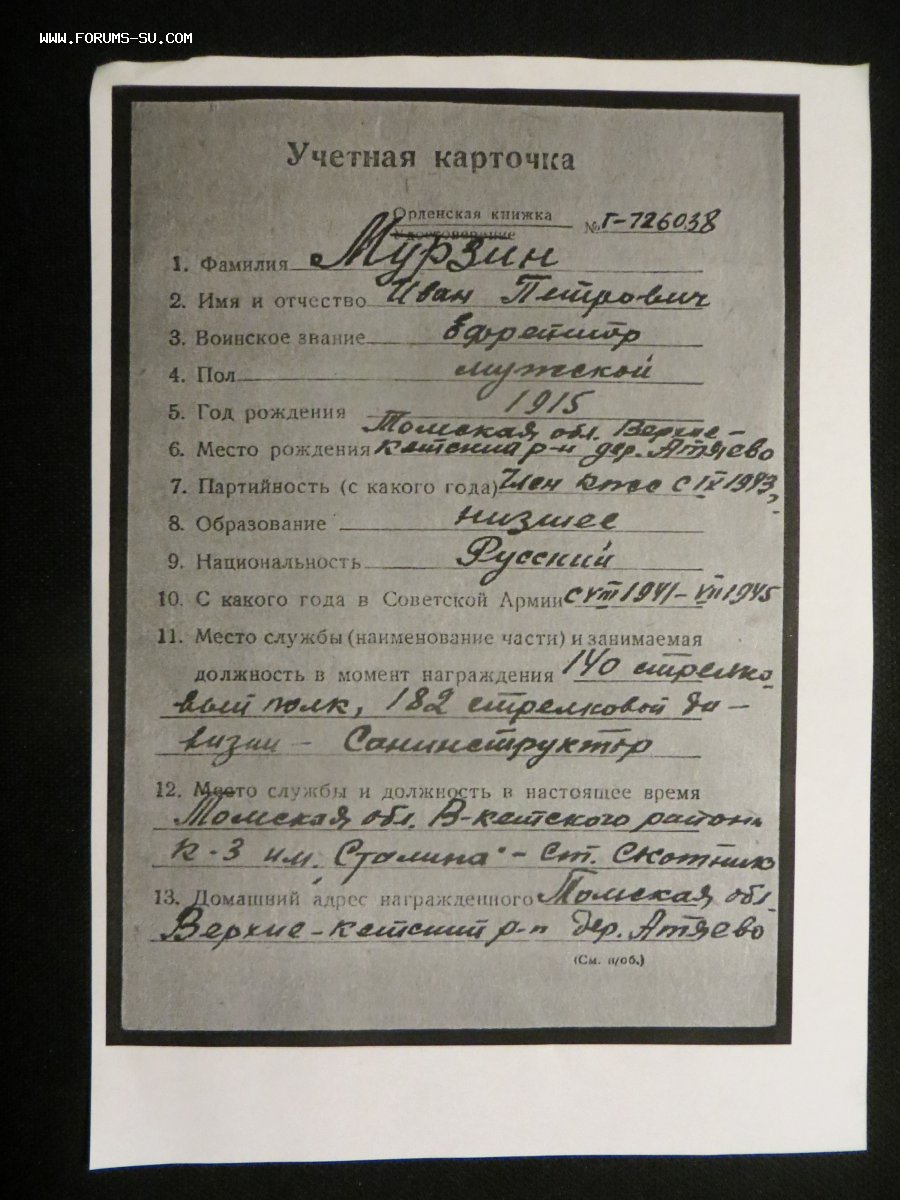 WWW.FORUMS-SU.COM
Учетная карточка
Орденская книжка
Удостоверение № Г-726038
1. Фамилия Мурзин
2. Имя и отчество Иван Петрович
3. Воинское звание Ефрейтор
4. Пол мужской
5. Год рождения 1915
Томская обл. Верхне-
6. Место рождения кетский р-н дер. Атяево
7. Партийность (с какого года) Член КПСС с IX 1943
8. Образование низшее
9. Национальность Русский
10. С какого года в Советской Армии с VIII 1941 - VII 1945
11. Место службы (наименование части) и занимаемая
должность в момент награждения 140 стрелко
вый полк, 182 стрелковой ди-
визии - Санинструктор
12. Место службы и должность в настоящее время
Томская обл. В-кетского района
К-З им. Сталина - ст. скотник
13. Домашний адрес награжденного Томская обл
Верхне-кетский р-н дер. Атяево
(См. н/об.)